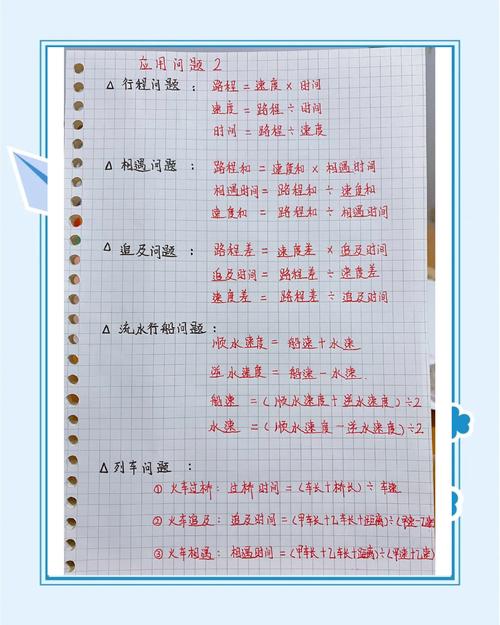 应用问题2
△ 行程问题： 路程 = 速度 × 时间
速度 = 路程 ÷ 时间
时间 = 路程 ÷ 速度
△ 相遇问题： 路程和 = 速度和 × 相遇时间
相遇时间 = 路程和 ÷ 速度和
速度和 = 路程和 ÷ 相遇时间
△ 追及问题： 路程差 = 速度差 × 追及时间
追及时间 = 路程差 ÷ 速度差
速度差 = 路程差 ÷ 追及时间
△ 流水行船问题：
顺水速度 = 船速 + 水速
逆水速度 = 船速 - 水速
船速 = (顺水速度 + 逆水速度) ÷ 2
水速 = (顺水速度 - 逆水速度) ÷ 2
△ 列车问题：
① 火车过桥：过桥时间 = (车长 + 桥长) ÷ 车速
② 火车追及：追及时间 = (甲车长 + 乙车长 + 距离) ÷ (甲速 - 乙速
③ 火车相遇：相遇时间 = (甲车长 + 乙车长 + 距离) ÷ (甲速 + 乙速)